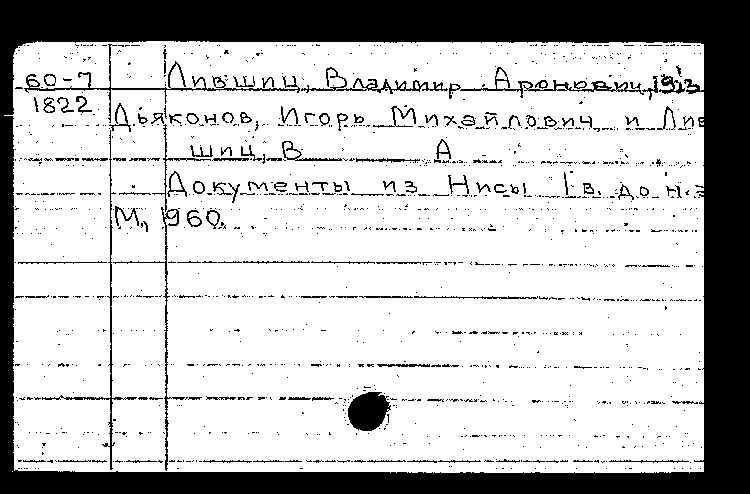 60-7 Лившиц, Владимир Аронович,
1822 Дьяконов, Игорь Михайлович и Лив
шиц, В А
Документы из Нисы I в. до н.э
М, 1960.